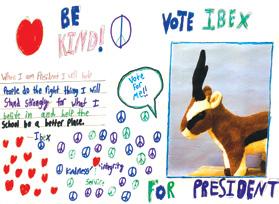 BE
KIND!
When I am President I will help
People do the right thing I will
Stand Strongly for what I
belive in and help the
School be a better Place.
Ibex
Kindness
Integrity
Service
Vote
for
Me!!
VOTE IBEX
FOR PRESIDENT